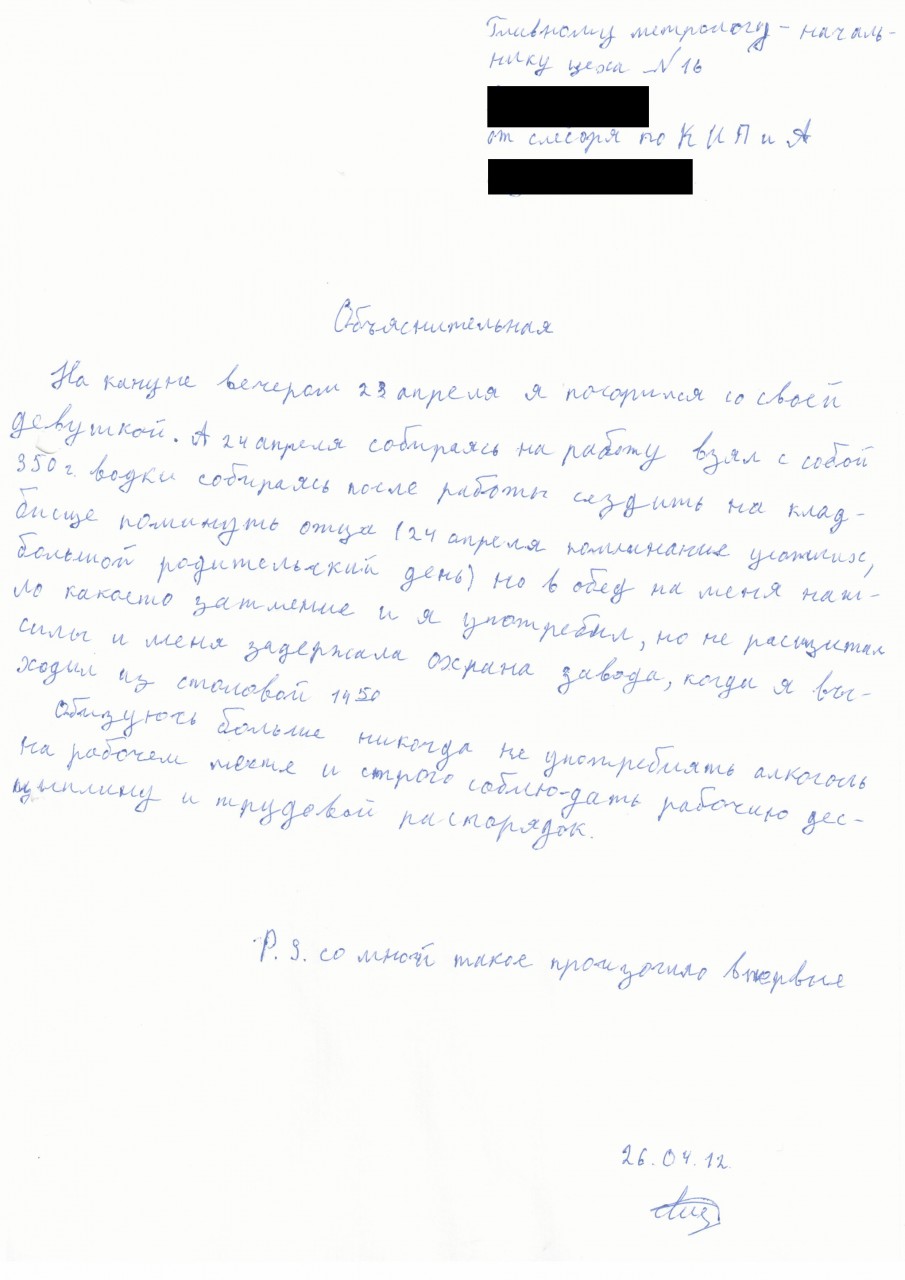 Главному метрологу – началь-
нику цеха N 16
от слесаря по К И П и А
Объяснительная
На кануне вечером 23 апреля я погорился со своей
девушкой. А 24 апреля собираясь на работу взял с собой
350 г. водки собираясь после работы сездить на клад-
бисще поминуть отца (24 апреля поминание усопших,
большой родительский день) но в обед на меня наш-
ло какоето затмение и я употребил, но не расщитал
силы и меня задержала охрана завода, когда я вы-
ходил из столовой 14 50
Обизуюсь больше никогда не употреблять алкоголь
на рабочем месте и строго соблю-дать рабочию дес-
цыплину и трудовой распорядок.
P. S. со мной такое произошло впервые
26.04.12.